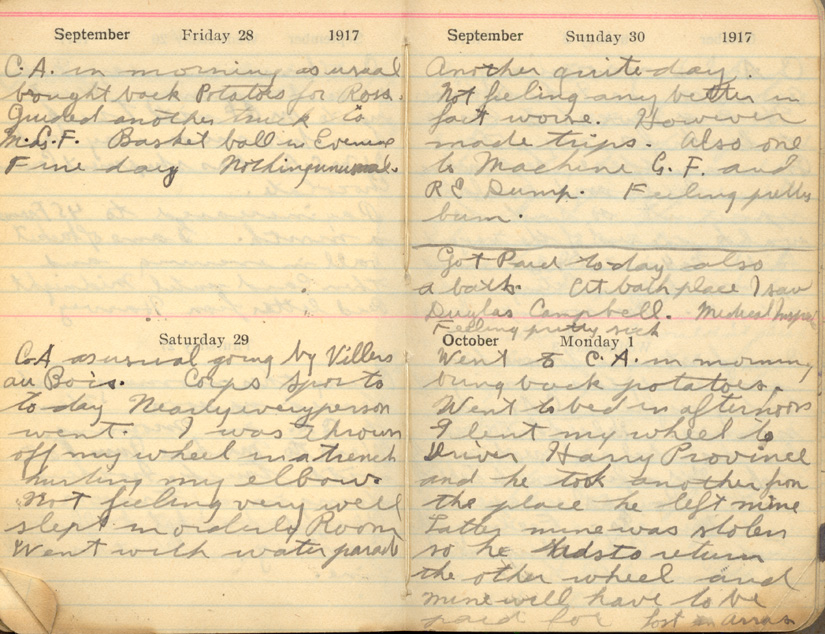 September Friday 28 1917
C.A. in morning as usual
bought back Potatoes for Ross.
Guided another truck to
M.G.F. Basket ball in Evening
Fine day Nothing unusual.
Saturday 29
C.A. as usual going by Villers
au Bois. Corps Sports
to-day Nearly every person
went. I was thrown
off my wheel in a trench
hurting my elbow.
Not feeling very well
slept in orderly Room
Went with water parade
September Sunday 30 1917
Another quite day.
Not feeling any better in
fact worse. However
made trips. Also one
to Machine G. F. and
R E Dump. Feeling pretty
bum.
Got Paid today also
a bath. At bath place I saw
Duglas Campbell. Medical Inspect
Feeling pretty sick
October Monday 1
Went to C.A. in morning
bring back potatoes.
Went to bed in afternoon
I lent my wheel to
Driver Harry Province
and he took another from
the place he left mine
Latter mine was stolen
so he to return
the other wheel and
mine will have to be
paid for lost in Arras